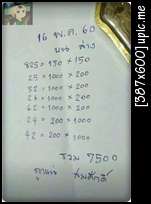 16 พ.ค. 60
บน ล่าง
825 = 150 × 150
25 = 1000 × 200
52 = 1000 × 200
26 = 1000 × 200
62 = 1000 × 200
24 = 200 × 1000
42 = 200 × 1000
รวม 7500
สมศักดิ์
[387x600] upic.me